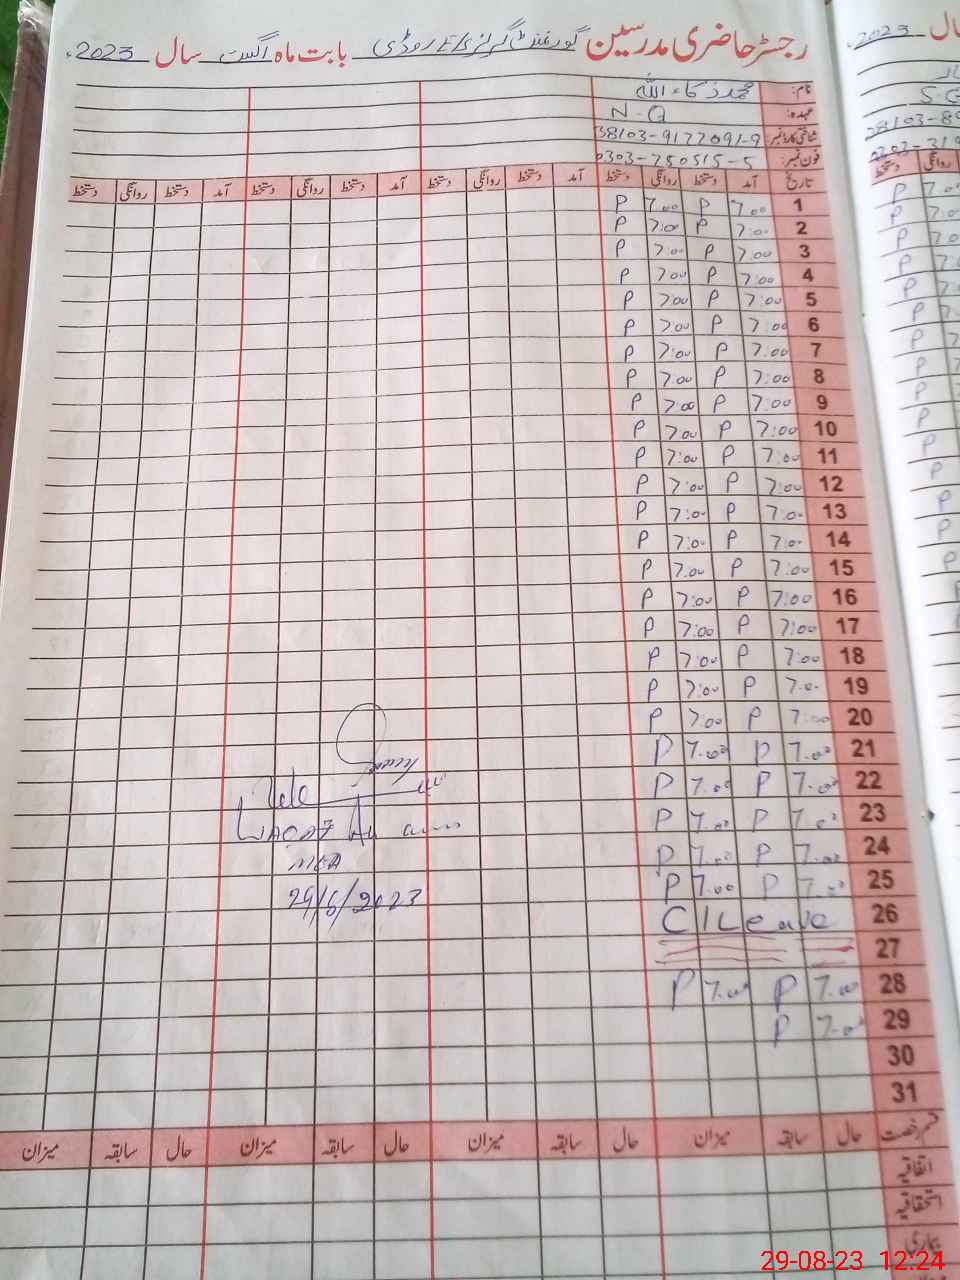 رجسٹر حاضری مدرسین گورنمنٹ گرلز بابت ماہ اگست سال 2023ء
نام: محمد ذکاء اللہ
عہدہ: N-Q
شناختی کارڈ نمبر: 38103-9177091-9
فون نمبر: 0303-750515-5
تاریخ آمد دستخط روانگی دستخط آمد دستخط روانگی دستخط آمد دستخط روانگی دستخط آمد دستخط روانگی دستخط
1 7.00 P 7.00 P
2 7:00 P 7:00 P
3 7:00 P 7:00 P
4 7:00 P 7:00 P
5 7:00 P 7:00 P
6 7:00 P 7:00 P
7 7:00 P 7:00 P
8 7:00 P 7:00 P
9 7:00 P 7:00 P
10 7:00 P 7:00 P
11 7:00 P 7:00 P
12 7:00 P 7:00 P
13 7:00 P 7:00 P
14 7:00 P 7:00 P
15 7:00 P 7:00 P
16 7:00 P 7:00 P
17 7:00 P 7:00 P
18 7:00 P 7:00 P
19 7:00 P 7:00 P
20 7:00 P 7:00 P
21 7.00 P 7.00 P
22 7.00 P 7.00 P
23 7.00 P 7.00 P
24 7.00 P 7.00 P
25 7.00 P 7.00 P
26 C/Leave
27
28 7.00 P 7.00 P
29 7.00 P
30
31
29/8/2023
قسم رخصت حال سابقہ میزان حال سابقہ میزان حال سابقہ میزان حال سابقہ میزان
اتفاقیہ
استحقاقیہ
بیماری
سال 2023ء
29-08-23 12:24